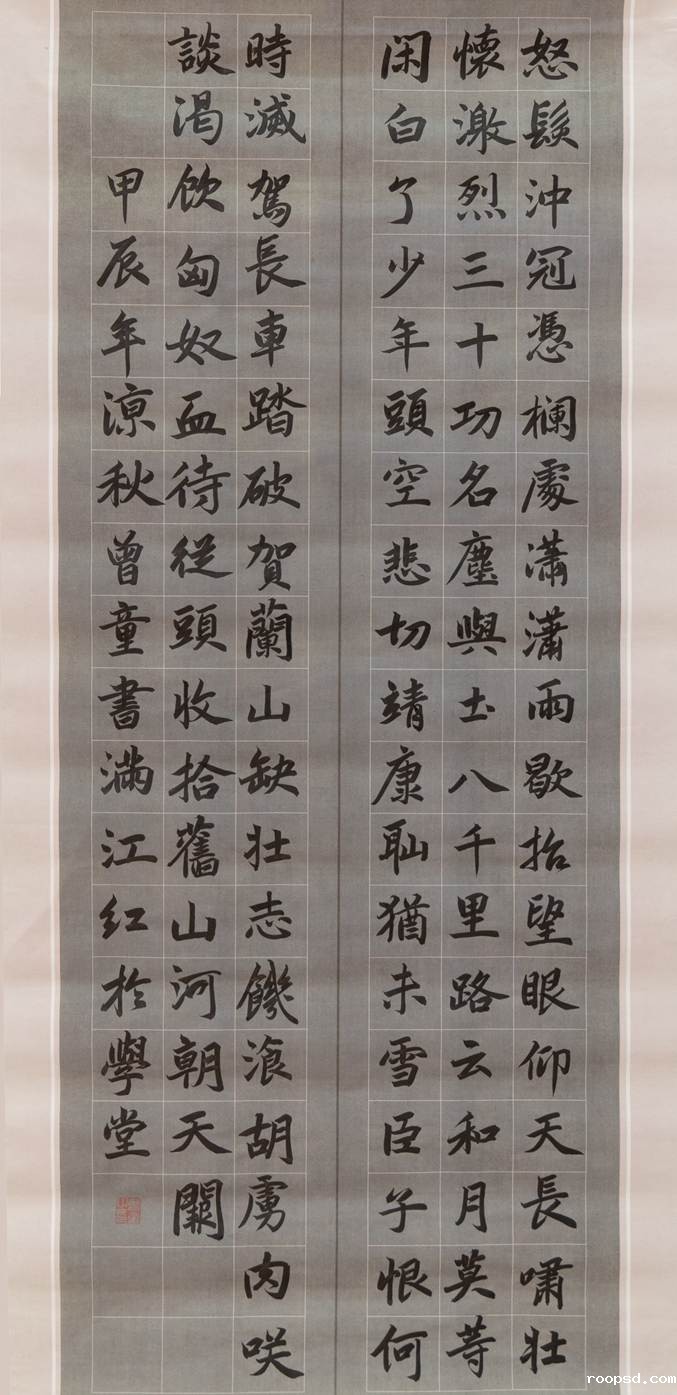 怒髮沖冠憑欄處瀟瀟雨歇抬望眼仰天長嘯壯
懷激烈三十功名塵與土八千里路云和月莫等
閑白了少年頭空悲切靖康恥猶未雪臣子恨何
時滅駕長車踏破賀蘭山缺壯志饑湌胡虜肉咲
談渴飲匈奴血待從頭收拾舊山河朝天闕
甲辰年涼秋曾童書滿江紅於學堂
roopsd.com